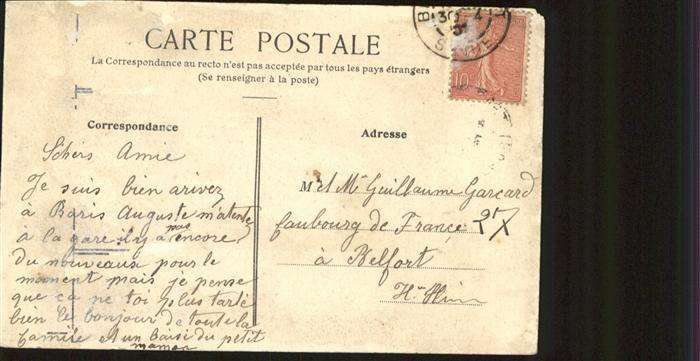 CARTE POSTALE
La Correspondance au recto n'est pas acceptée par tous les pays étrangers
(Se renseigner à la poste)
Correspondance
Adresse
Schers Amie
Je suis bien arivez
à Paris Auguste m'atente
à la gare il ry a pas encore
Du nouveaux pour le
moment mais je pense
que ca ne toi plus tardé
bien le bonjour de toute la
famile et un baisé du petit
maman
M et Me Guillaume Garcard
faubourg de France 27
à Belfort
Ht Rhin
10